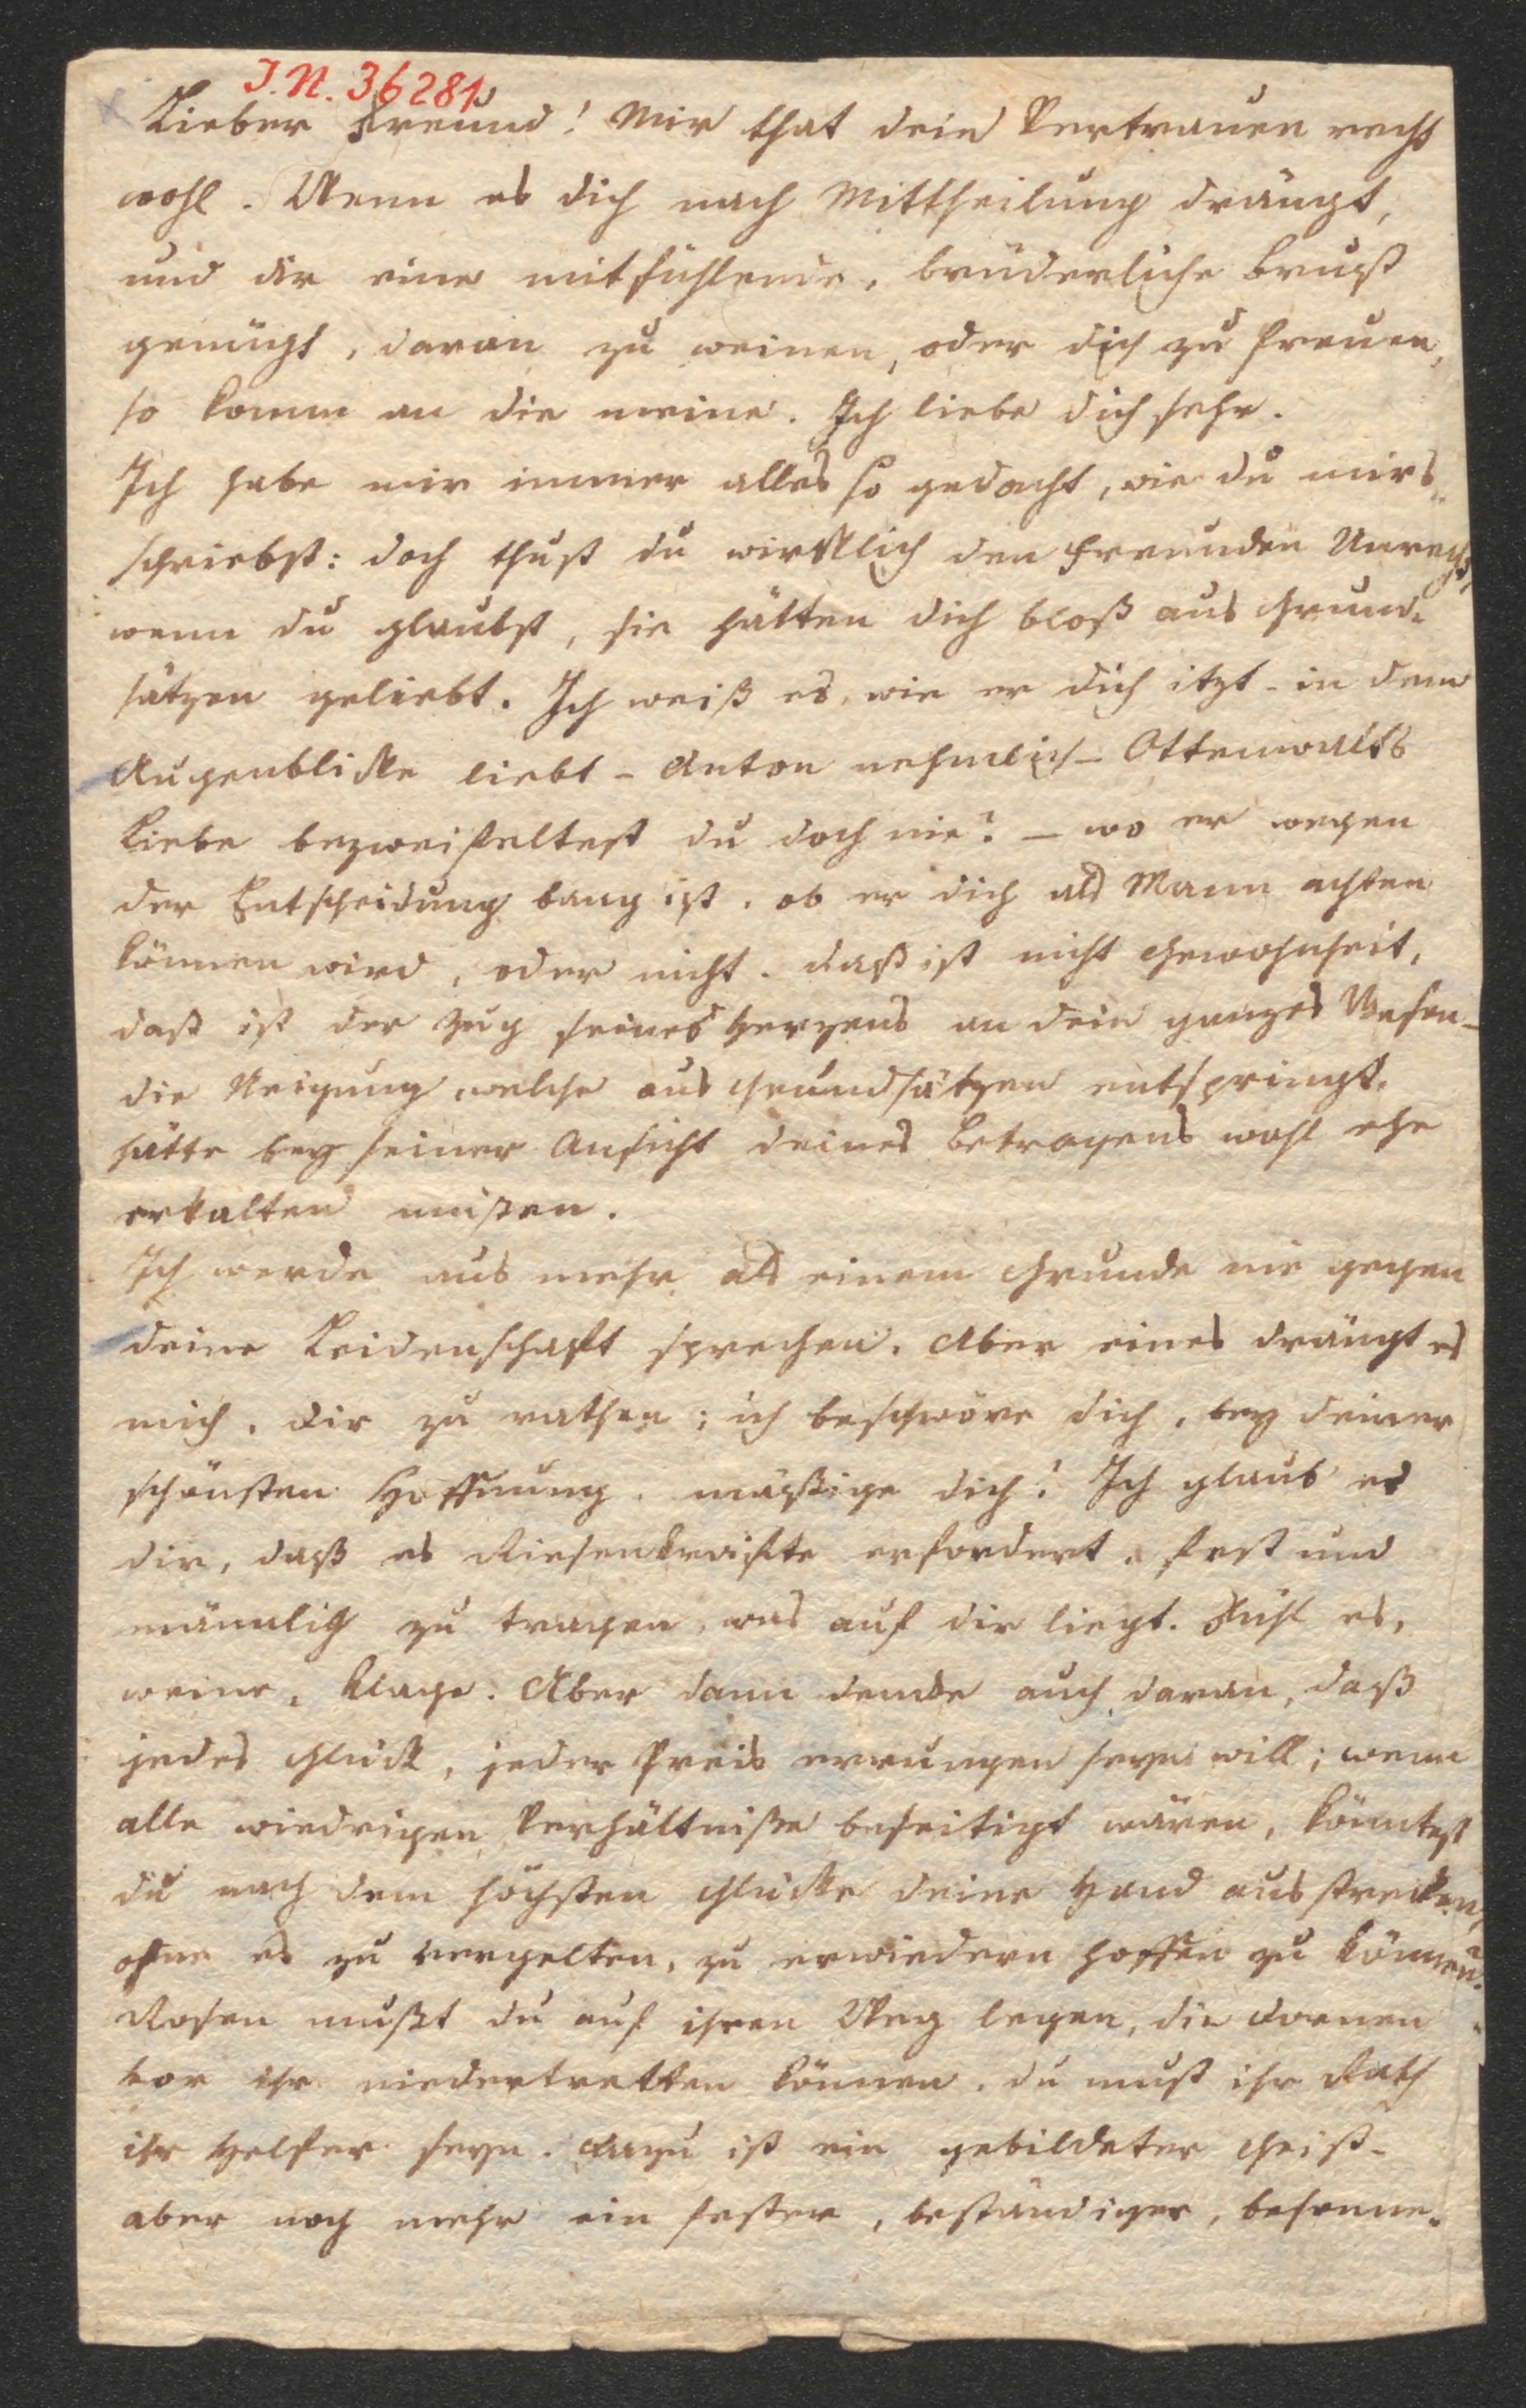 J. N. 36281
Lieber Freund! Mir that dein Vertrauen recht
wohl. Wenn es dich nach Mittheilung drängt,
und dir eine mitfühlende, brüderliche Brust
genügt, daran zu weinen, oder dich zu freuen,
so komm an die meine. Ich liebe dich sehr.
Ich habe mir immer alles so gedacht, wie du mirs
schriebst: doch thust du wirklich den Freunden Unrecht,
wenn du glaubst, sie hätten dich bloß aus Grund-
sätzen geliebt. Ich weiß es, wie er dich itzt - in dem
Augenblicke liebt - Anton nehmlich - Ottenwalts
Liebe bezweifeltest du doch nie? - wo er wegen
der Entscheidung bang ist, ob er dich als Mann achten
können wird, oder nicht. Daß ist nicht Gewohnheit,
daß ist der Zug seines Herzens an dein ganzes Wesen -
die Neigung, welche aus Grundsätzen entspringt,
hätte bey seiner Ansicht deines Betragens wohl ehe
erkalten müßen.
Ich werde aus mehr als einem Grunde nie gegen
deine Leidenschaft sprechen. Aber eines drängt es
mich, dir zu rathen; ich beschwöre dich, bey deiner
schönsten Hoffnung, mäßige dich! Ich glaub es
dir, daß es Riesenkräfte erfordert, fest und
männlich zu tragen, was auf dir liegt. Fühl es,
weine, klage. Aber dann denke auch daran, daß
jedes Glück, jeder Preis errungen seyn will; wenn
alle wiedrigen Verhältniße beseitigt wären, könntest
du nach dem höchsten Glücke deine Hand ausstrecken,
ohne es zu vergelten, zu erwiedern hoffen zu können?
Rosen mußt du auf ihren Weg legen, die Dornen
vor ihr niedertretten können, du must ihr Rath
ihr Helfer seyn. Dazu ist ein gebildeter Geist -
aber noch mehr ein fester, beständiger, besonne-